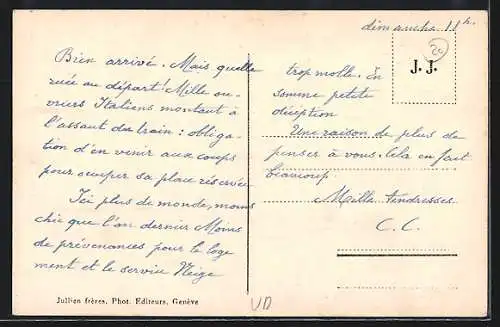 dimanche 11h.
20
J. J.
Bien arrivé. Mais quelle
ruée au départ! Mille ou-
vriers Italiens montant à
l'assaut du train : obliga-
tion d'en venir aux coups
pour occuper sa place réservée
Ici plus de monde, moins
chic que l'an dernier Moins
de prévenances pour le loge
ment et le service Neige
trop molle. En
somme petite
déception
Une raison de plus de
penser à vous. Cela en fait
beaucoup
Mille tendresses
C. C.
Jullien frères, Phot. Editeurs, Genève
VD